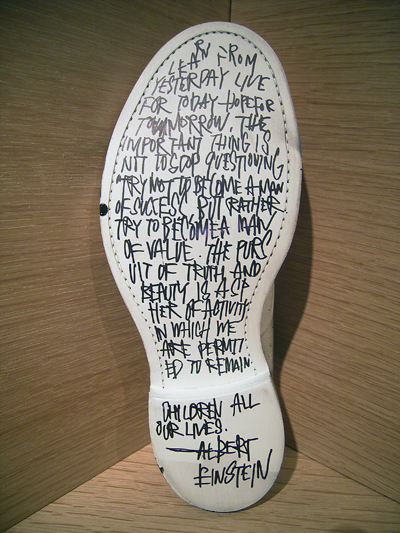 LEARN FROM
YESTERDAY LIVE
FOR TODAY-HOPE FOR
TOMMORROW. THE
IMPORTANT THING IS
NIT TO STOP QUESTIONING
"TRY NOT TO BECOME A MAN
OF SUCCESS, BUT RATHER
TRY TO BECOME A MAN
OF VALUE. THE PURS
UIT OF TRUTH AND
BEAUTY IS A SP
HER OF ACTIVITY
IN WHICH WE
ARE PERMITT
ED TO REMAIN.
CHILDREN ALL
OUR LIVES.
—ALBERT
EINSTEIN